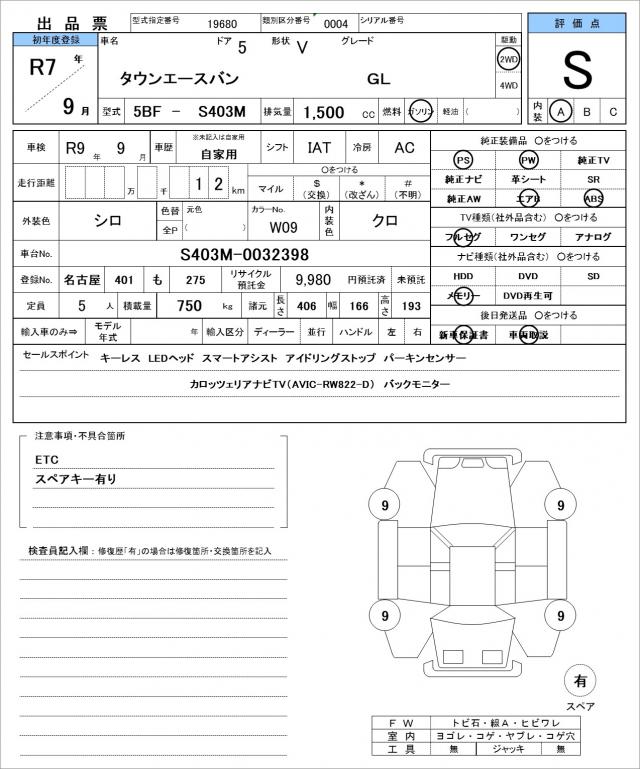 出品票 型式指定番号 19680 類別区分番号 0004 シリアル番号
評価点
初年度登録 車名 ドア 5 形状 V グレード 駆動
R7 年 タウンエースバン GL 2WD S
4WD
9 月 型式 5BF － S403M 排気量 1,500 cc 燃料 ガソリン 軽油 ( ) 内装 A B C
車検 R9 年 9 月 車歴 ※未記入は自家用 自家用 シフト IAT 冷房 AC 純正装備品 〇をつける
PS PW 純正TV
走行距離 万 千 1 2 km 〇をつける
マイル $(交換) *(改ざん) #(不明)
純正ナビ 革シート SR
純正AW エアB ABS
外装色 シロ 色替 元色 カラーNo. 内装色 クロ
全P ( ) W09
TV種類(社外品含む) 〇をつける
フルセグ ワンセグ アナログ
車台No. S403M-0032398 ナビ種類(社外品含む) 〇をつける
登録No. 名古屋 401 も 275 リサイクル預託金 9,980 円預託済 未預託 HDD DVD SD
定員 5 人 積載量 750 kg 諸元 長さ 406 幅 166 高さ 193 メモリー DVD再生可
後日発送品 〇をつける
輸入車のみ⇒ モデル年式 年 輸入区分 ディーラー 並行 ハンドル 左 右 新車保証書 車両取説
セールスポイント キーレス LEDヘッド スマートアシスト アイドリングストップ パーキンセンサー
カロッツェリアナビTV(AVIC-RW822-D) バックモニター
注意事項・不具合箇所
ETC
スペアキー有り
検査員記入欄：修復歴「有」の場合は修復箇所・交換箇所を記入
9 9
9 9
有
スペア
ＦＷ トビ石・線A・ヒビワレ
室内 ヨゴレ・コゲ・ヤブレ・コゲ穴
工具 無 ジャッキ 無